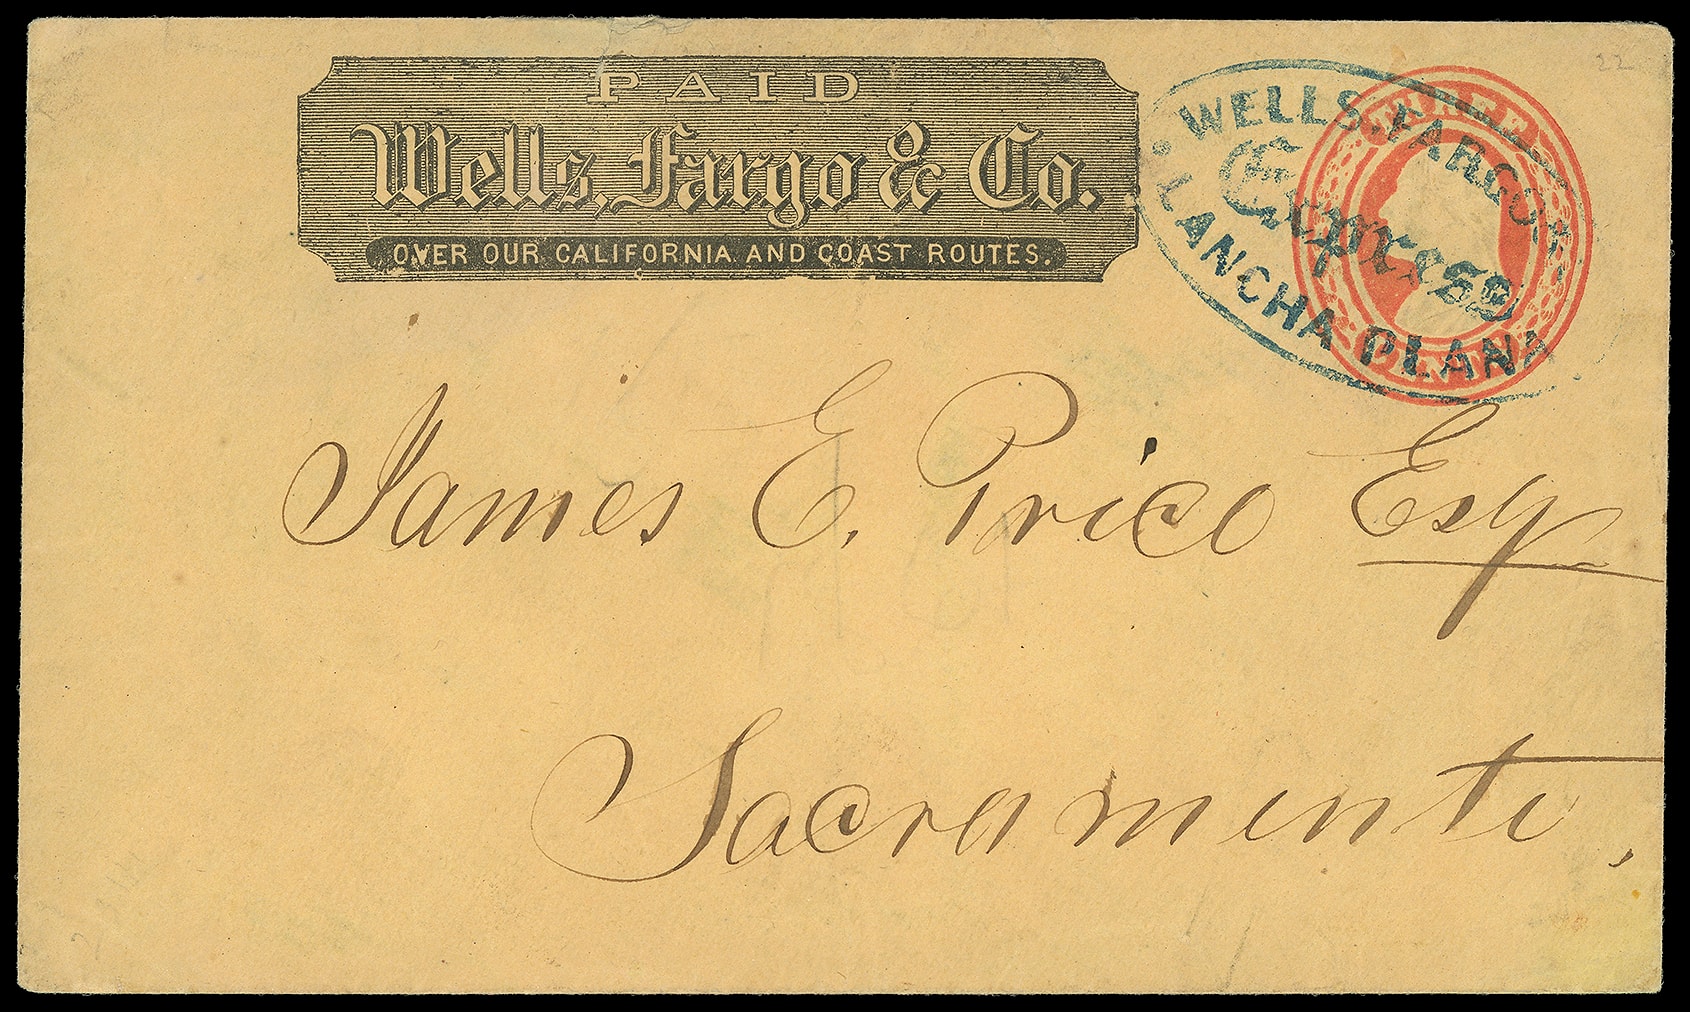 PAID
Wells, Fargo & Co.
OVER OUR CALIFORNIA AND COAST ROUTES.
WELLS, FARGO &
Express
LANCHA PLANA
THREE
CENTS
22
James E. Price Esq
Sacramento,